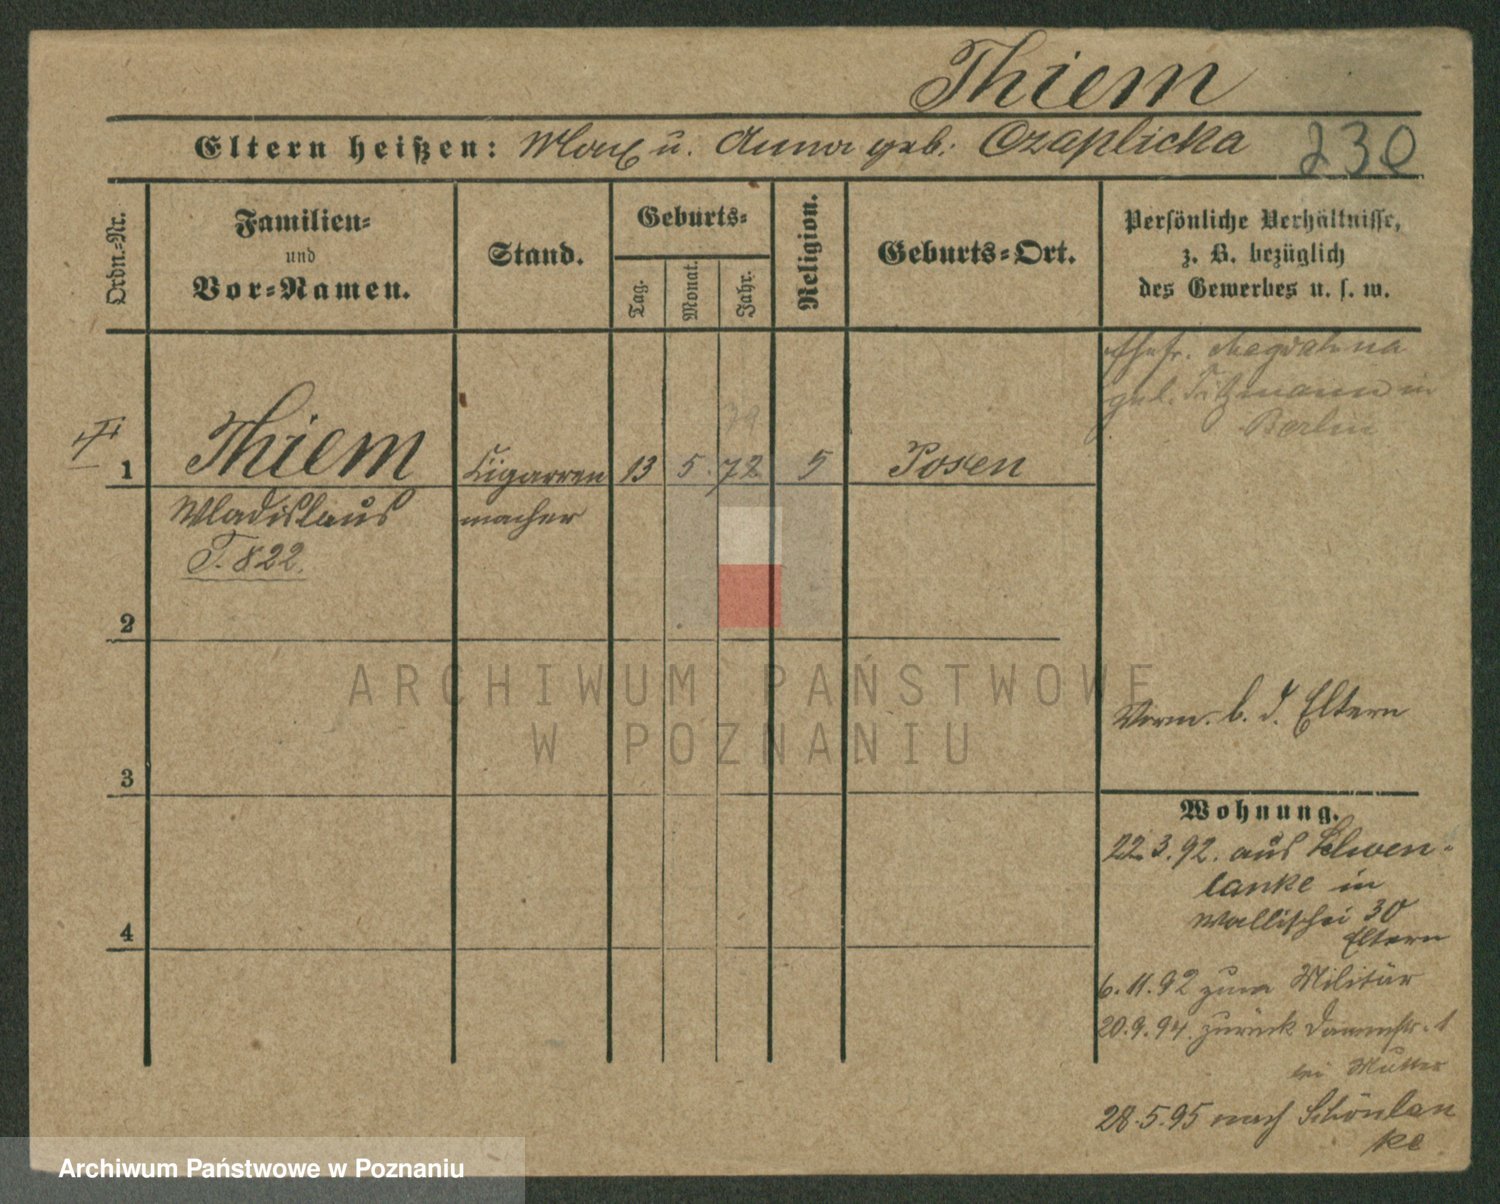 Thiem
Eltern heißen: Max u. Anna geb. Czaplicka
230
Ordn.-Nr.
Familien-
und
Vor-Namen.
Stand.
Geburts-
Tag.
Monat.
Jahr.
Religion.
Geburts-Ort.
Persönliche Verhältnisse,
z. B. bezüglich
des Gewerbes u. s. w.
Ehefr. Magdalena
geb. in
Berlin
1 Thiem Cigarren 13 5. 72. Posen
Wladislaus macher
T. 822.
2
3
4
ARCHIWUM PAŃSTWOWE
W POZNANIU
Vorm. b. d. Eltern
Wohnung.
22.3.92. aus Schoen-
lanke in
Wallischei 30
Eltern
6.11.92 zum Militär
20.9.94. zurück Dammstr. 1
bei Mutter
28.5.95 nach Schönlan
ke
Archiwum Państwowe w Poznaniu